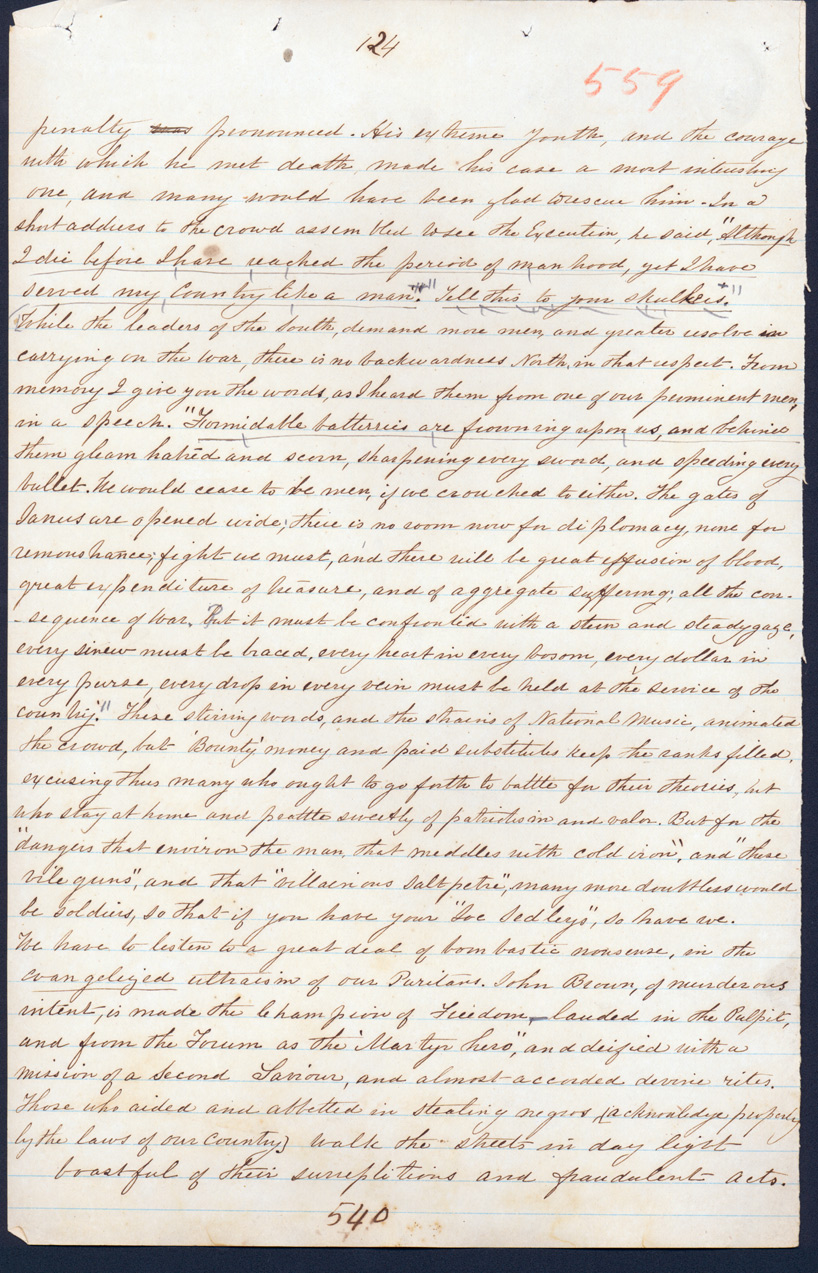 124
559
penalty was pronounced. His extreme youth, and the courage
with which he met death, made his case a most interesting
one, and many would have been glad to rescue him. In a
short address to the crowd assembled to see the Execution, he said, "Although
I die before I have reached the period of manhood, yet I have
served my Country like a man." Tell this to your skulkers."
While the leaders of the South, demand more men, and greater resolve in
carrying on the war, there is no backwardness North, in that respect. From
memory I give you the words, as I heard them from one of our prominent men,
in a speech. "Formidable batterries are frowning upon us, and behind
them gleam hatred and scorn, sharpening every sword, and speeding every
bullet. We would cease to be men, if we crouched to either. The gates of
Janus are opened wide; there is no room now for diplomacy, none for
remonstrance; fight we must, and there will be great effusion of blood,
great expenditure of treasure, and of aggregate suffering; all the con-
-sequence of war. But it must be confronted with a stern and steady gaze,
every sinew must be braced, every heart in every bosom, every dollar in
every purse, every drop in every vein must be held at the service of the
country." These stirring words, and the strains of National Music, animated
the crowd, but 'Bounty' money and paid substitutes keep the ranks filled,
excusing thus many who ought to go forth to battle for their theories, but
who stay at home and prattle sweetly of patriotism and valor. But for the
"dangers that environ the man, that meddles with cold iron", and "those
vile guns", and that "villainous saltpetre", many more doubtless would
be soldiers, so that if you have your "Joe Sedleys", so have we.
We have to listen to a great deal of bombastic nonsense, in the
evangelized ultraism of our Puritans. John Brown, of murderous
intent, is made the Champion of Freedom, lauded in the Pulpit,
and from the Forum as the 'Martyr hero', and deified with a
mission of a Second Saviour, and almost accorded devine rites.
Those who aided and abbetted in stealing negros (acknowledge property
by the laws of our Country) walk the streets in day light
boastful of their surreptitions and fraudulent acts.
540